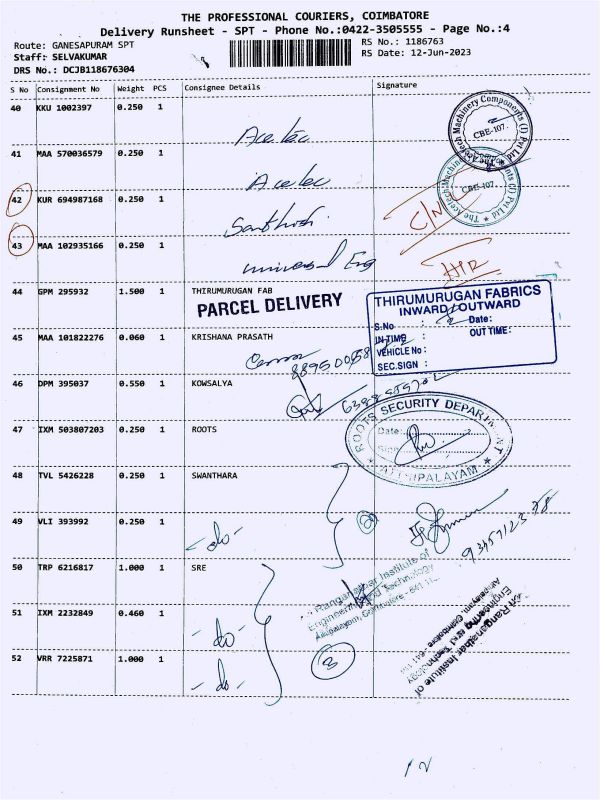 THE PROFESSIONAL COURIERS, COIMBATORE
Delivery Runsheet - SPT - Phone No.:0422-3505555 - Page No.:4
Route: GANESAPURAM SPT
RS No.: 1186763
Staff: SELVAKUMAR
RS Date: 12-Jun-2023
DRS No.: DCJB118676304
S No Consignment No Weight PCS Consignee Details Signature
40 KKU 1002397 0.250 1
The Acetech Machinery Components (I) Pvt Ltd
CBE-107.
41 MAA 570036579 0.250 1
The Acetech Machinery Components (I) Pvt Ltd
CBE-107.
42 KUR 694987168 0.250 1
Santhosh
C/N
43 MAA 102935166 0.250 1
universal Eng
44 GPM 295932 1.500 1 THIRUMURUGAN FAB
PARCEL DELIVERY
THIRUMURUGAN FABRICS
INWARD/OUTWARD
S.No : Date:
IN TIME : OUT TIME:
VEHICLE No :
SEC.SIGN :
45 MAA 101822276 0.060 1 KRISHANA PRASATH
46 DPM 395037 0.550 1 KOWSALYA
47 IXM 503807203 0.250 1 ROOTS
ROOTS SECURITY DEPARTMENT
Date:
Sign
ATTIPALAYAM
48 TVL 5426228 0.250 1 SWANTHARA
49 VLI 393992 0.250 1
-do-
2
50 TRP 6216817 1.000 1 SRE
Ranganathar Institute of
Engineering and Technology
Athipalayam, Coimbatore - 641 110
51 IXM 2232849 0.460 1
-do-
Sri Ranganathar Institute of
Engineering and Technology
Athipalayam, Coimbatore - 641 110
52 VRR 7225871 1.000 1
-do-
3